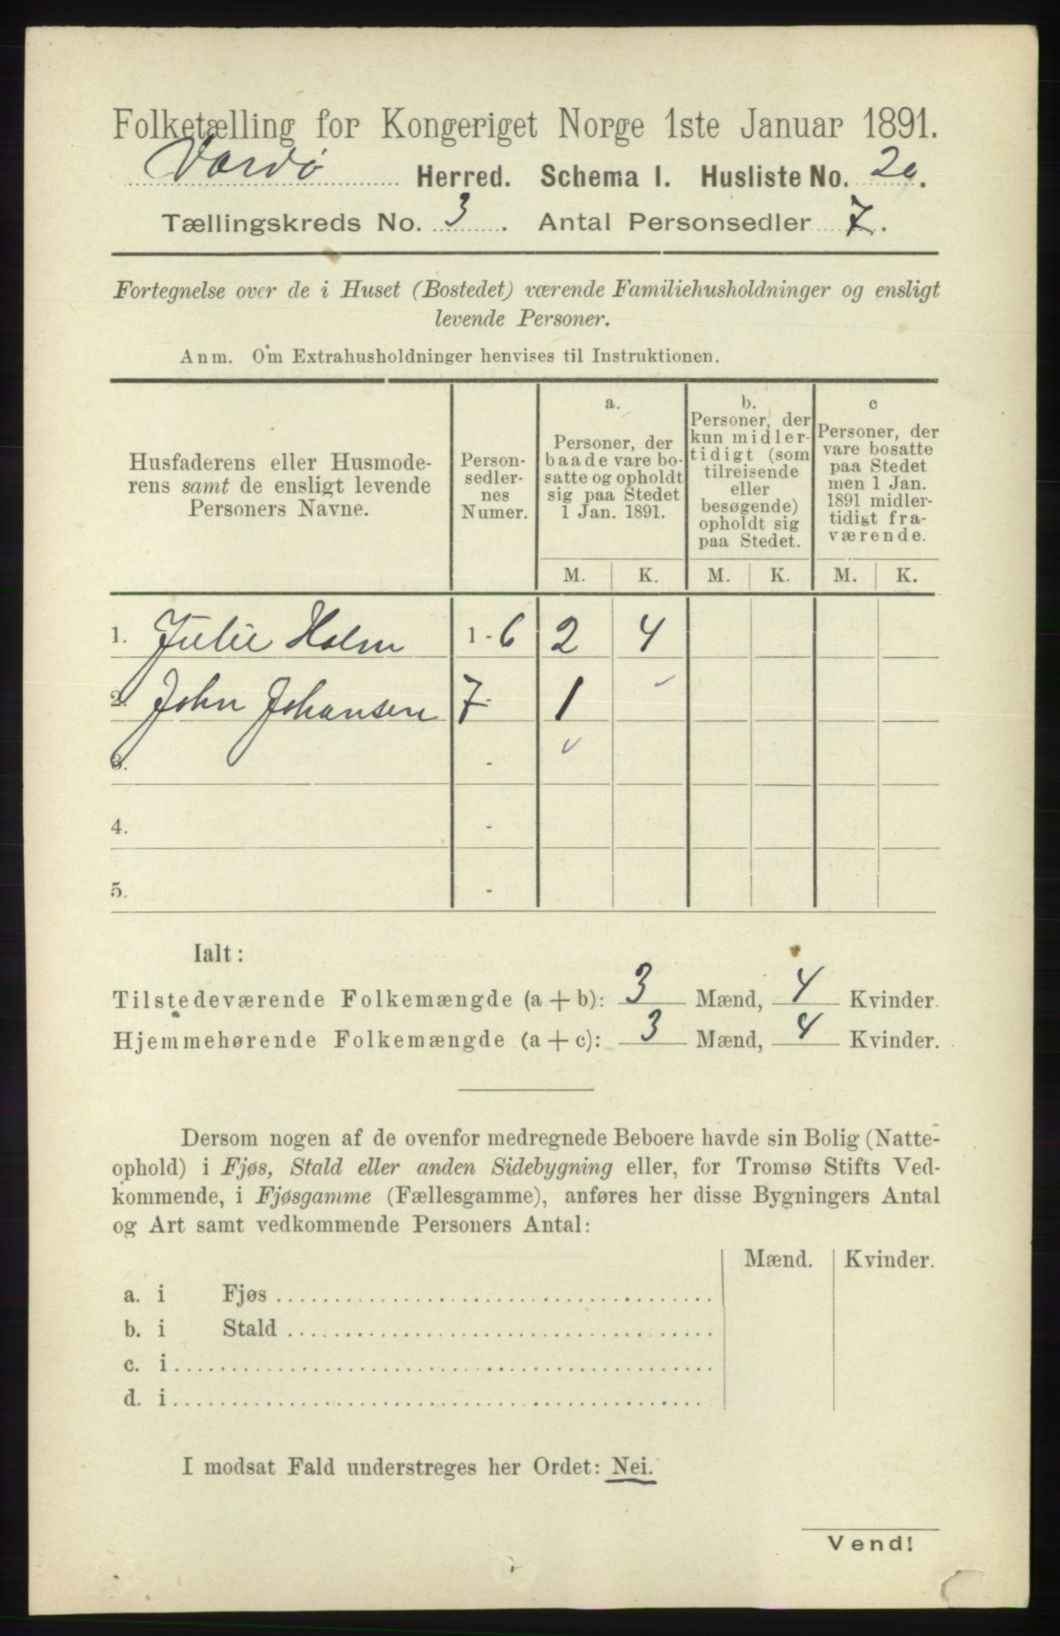 Folketælling for Kongeriget Norge 1ste Januar 1891.
Vardø Herred. Schema I. Husliste No. 20.
Tællingskreds No. 3. Antal Personsedler 7.
Fortegnelse over de i Huset (Bostedet) værende Familiehusholdninger og ensligt
levende Personer.
Anm. Om Extrahusholdninger henvises til Instruktionen.
Husfaderens eller Husmode-
rens samt de ensligt levende
Personers Navne.
Person-
sedler-
nes
Numer.
a.
Personer, der
baade vare bo-
satte og opholdt
sig paa Stedet
1 Jan. 1891.
b.
Personer, der
kun midler-
tidigt (som
tilreisende
eller
besøgende)
opholdt sig
paa Stedet.
c
Personer, der
vare bosatte
paa Stedet
men 1 Jan.
1891 midler-
tidigt fra-
værende.
M. K. M. K. M. K.
1. Julie Holm 1-6 2 4
2. John Johansen 7- 1
3. -
4. -
5. -
Ialt:
Tilstedeværende Folkemængde (a + b): 3 Mænd, 4 Kvinder.
Hjemmehørende Folkemængde (a + c): 3 Mænd, 4 Kvinder.
Dersom nogen af de ovenfor medregnede Beboere havde sin Bolig (Natte-
ophold) i Fjøs, Stald eller anden Sidebygning eller, for Tromsø Stifts Ved-
kommende, i Fjøsgamme (Fællesgamme), anføres her disse Bygningers Antal
og Art samt vedkommende Personers Antal:
Mænd. Kvinder.
a. i Fjøs
b. i Stald
c. i
d. i
I modsat Fald understreges her Ordet: Nei.
Vend!